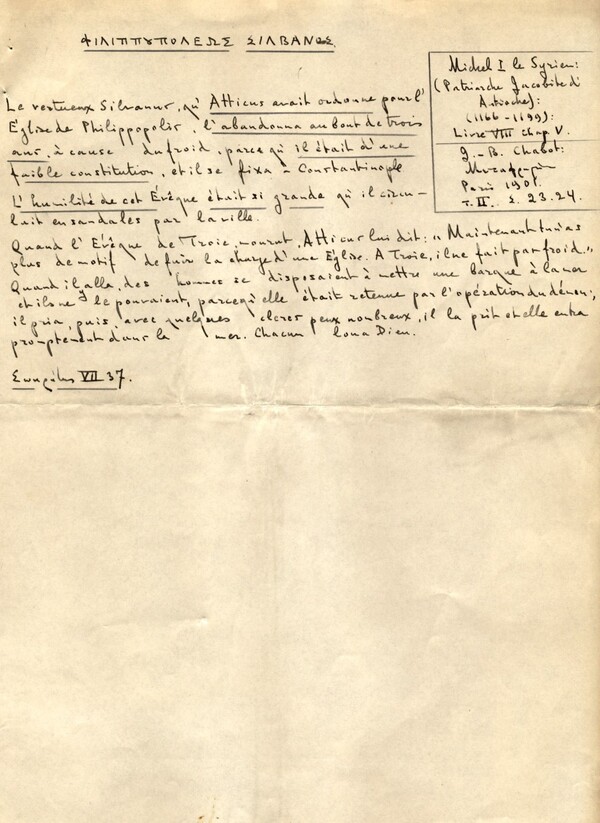 ΦΙΛΙΠΠΥΠΟΛΕΩΣ ΣΙΛΒΑΝΟΣ.
Michel I le Syrien:
(Patriarche Jacobite d'
Antioche):
(1166-1199):
Livre VIII chap V.
J.-B. Chabot:
Paris 1901.
T. II. Σ. 23.24.
Le vertueux Silvanus, qu' Atticus avait ordonné pour l'
Église de Philippopolis, l'abandonna au bout de trois
ans, à cause du froid, parce qu'il était d'une
faible constitution, et il se fixa à Constantinople
L'humilité de cet Évêque était si grande qu'il circu-
lait en sandales par la ville.
Quand l'Evêque de Troie, mourut, Atticus lui dit: „Maintenant tu n'as
plus de motif de fuir la charge d'une Eglise. A Troie, il ne fait pas froid."
Quand il y alla, des hommes se disposaient à mettre une barque à la mer
et ils ne le pouvaient, parce qu'elle était retenue par l'opération du démon;
il pria, puis, avec quelques clercs peux nombreux, il la prit et elle entra
promptement dans la mer. Chacun loua Dieu.
Σωκράτης VII 37.